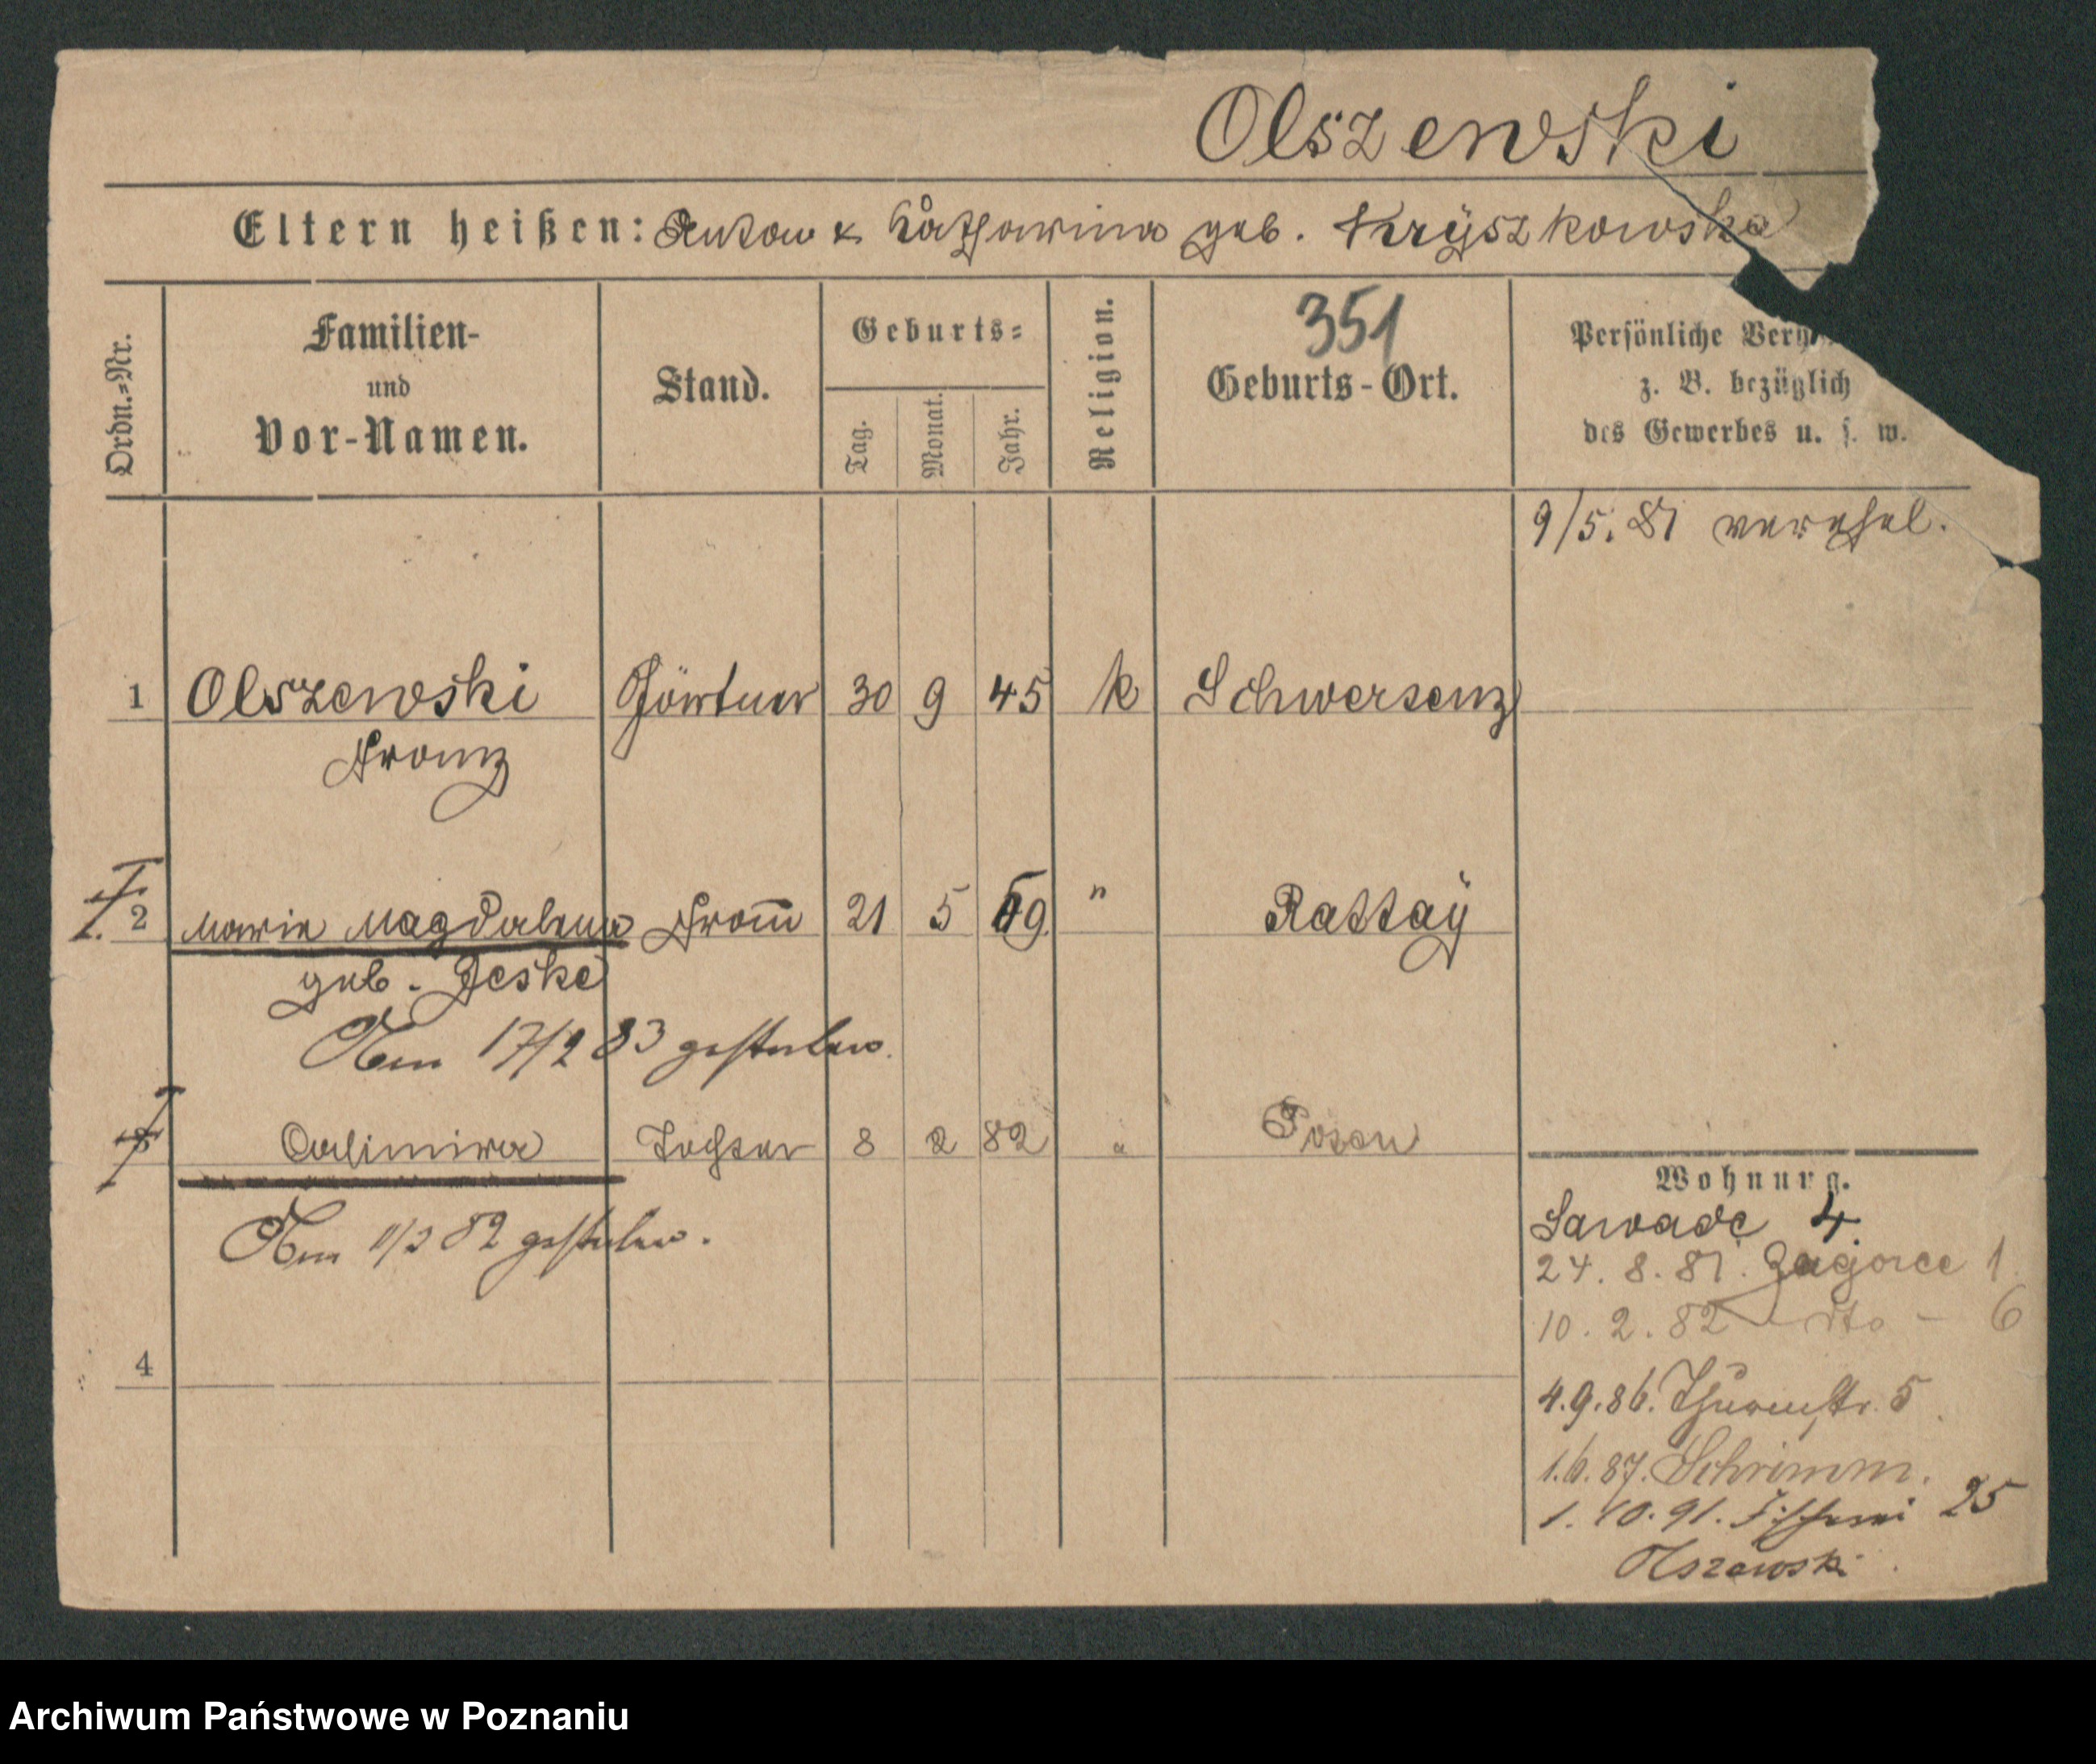 Olszewski
Eltern heißen: Anton & Katharina geb. Kryszkowska
Ordn.=Nr.
Familien-
und
Vor-Namen.
Stand.
Geburts=
Tag.
Monat.
Jahr.
Religion.
351
Geburts-Ort.
Persönliche
z. B. bezüglich
des Gewerbes u. s. w.
9/5. 81 verehel.
1 Olszewski Gärtner 30 9 45 k Schwersenz
Franz
2 Marie Magdalena Frau 21 5 49 " Rattay
geb. Jeske
Am 17/2 83 gestorben.
3 Casimira Tochter 8 2 82 " Posen
Am 11/2 82 gestorben.
4
Wohnung.
Sawade 4
24. 8. 81. Zagorce 1
10. 2. 82 - dto - 6
4.9.86. Thurmstr. 5
1.6.87. Schrimm.
1. 10. 91. Fischerei 25
Olszewski
Archiwum Państwowe w Poznaniu